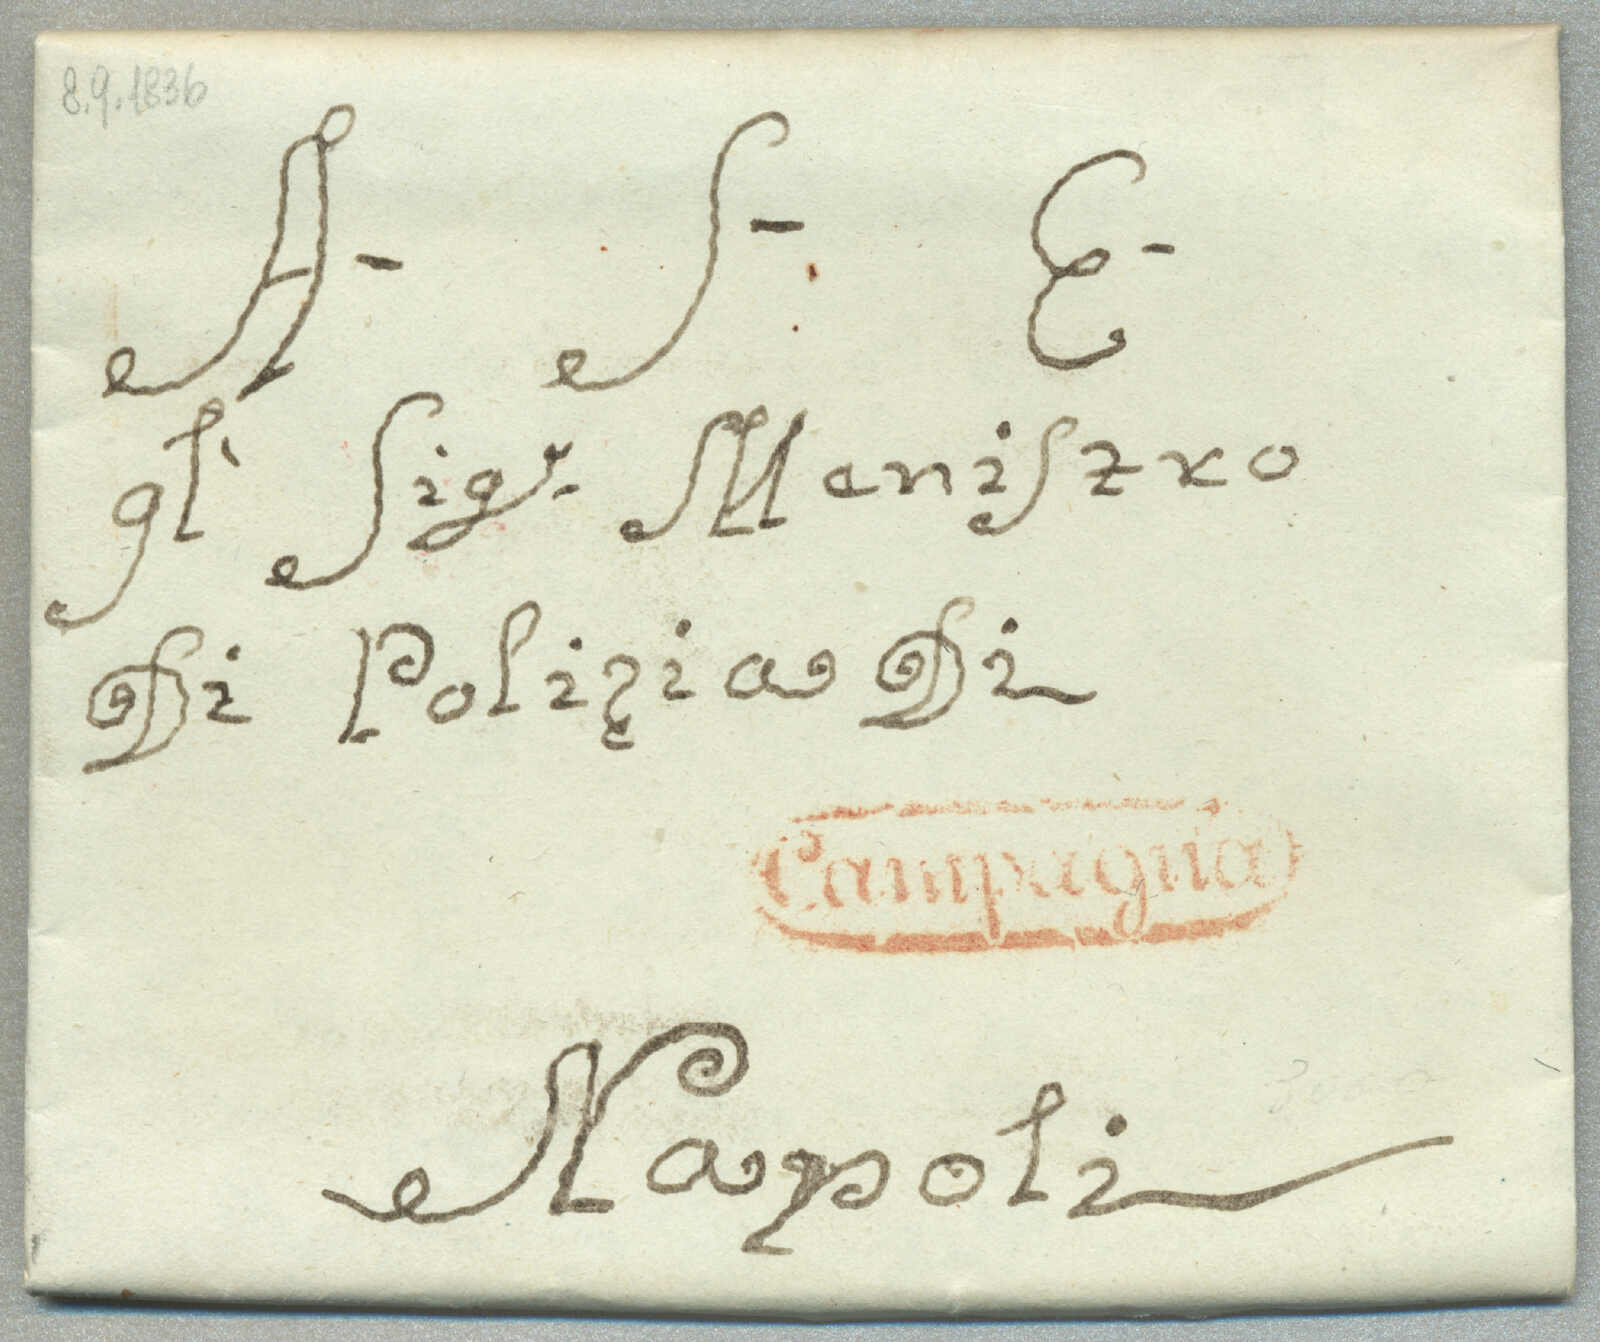 8.9.1836
A- S- E-
gl' Sigr. Meniszro
Di Polizia Di
Campagna
Napoli